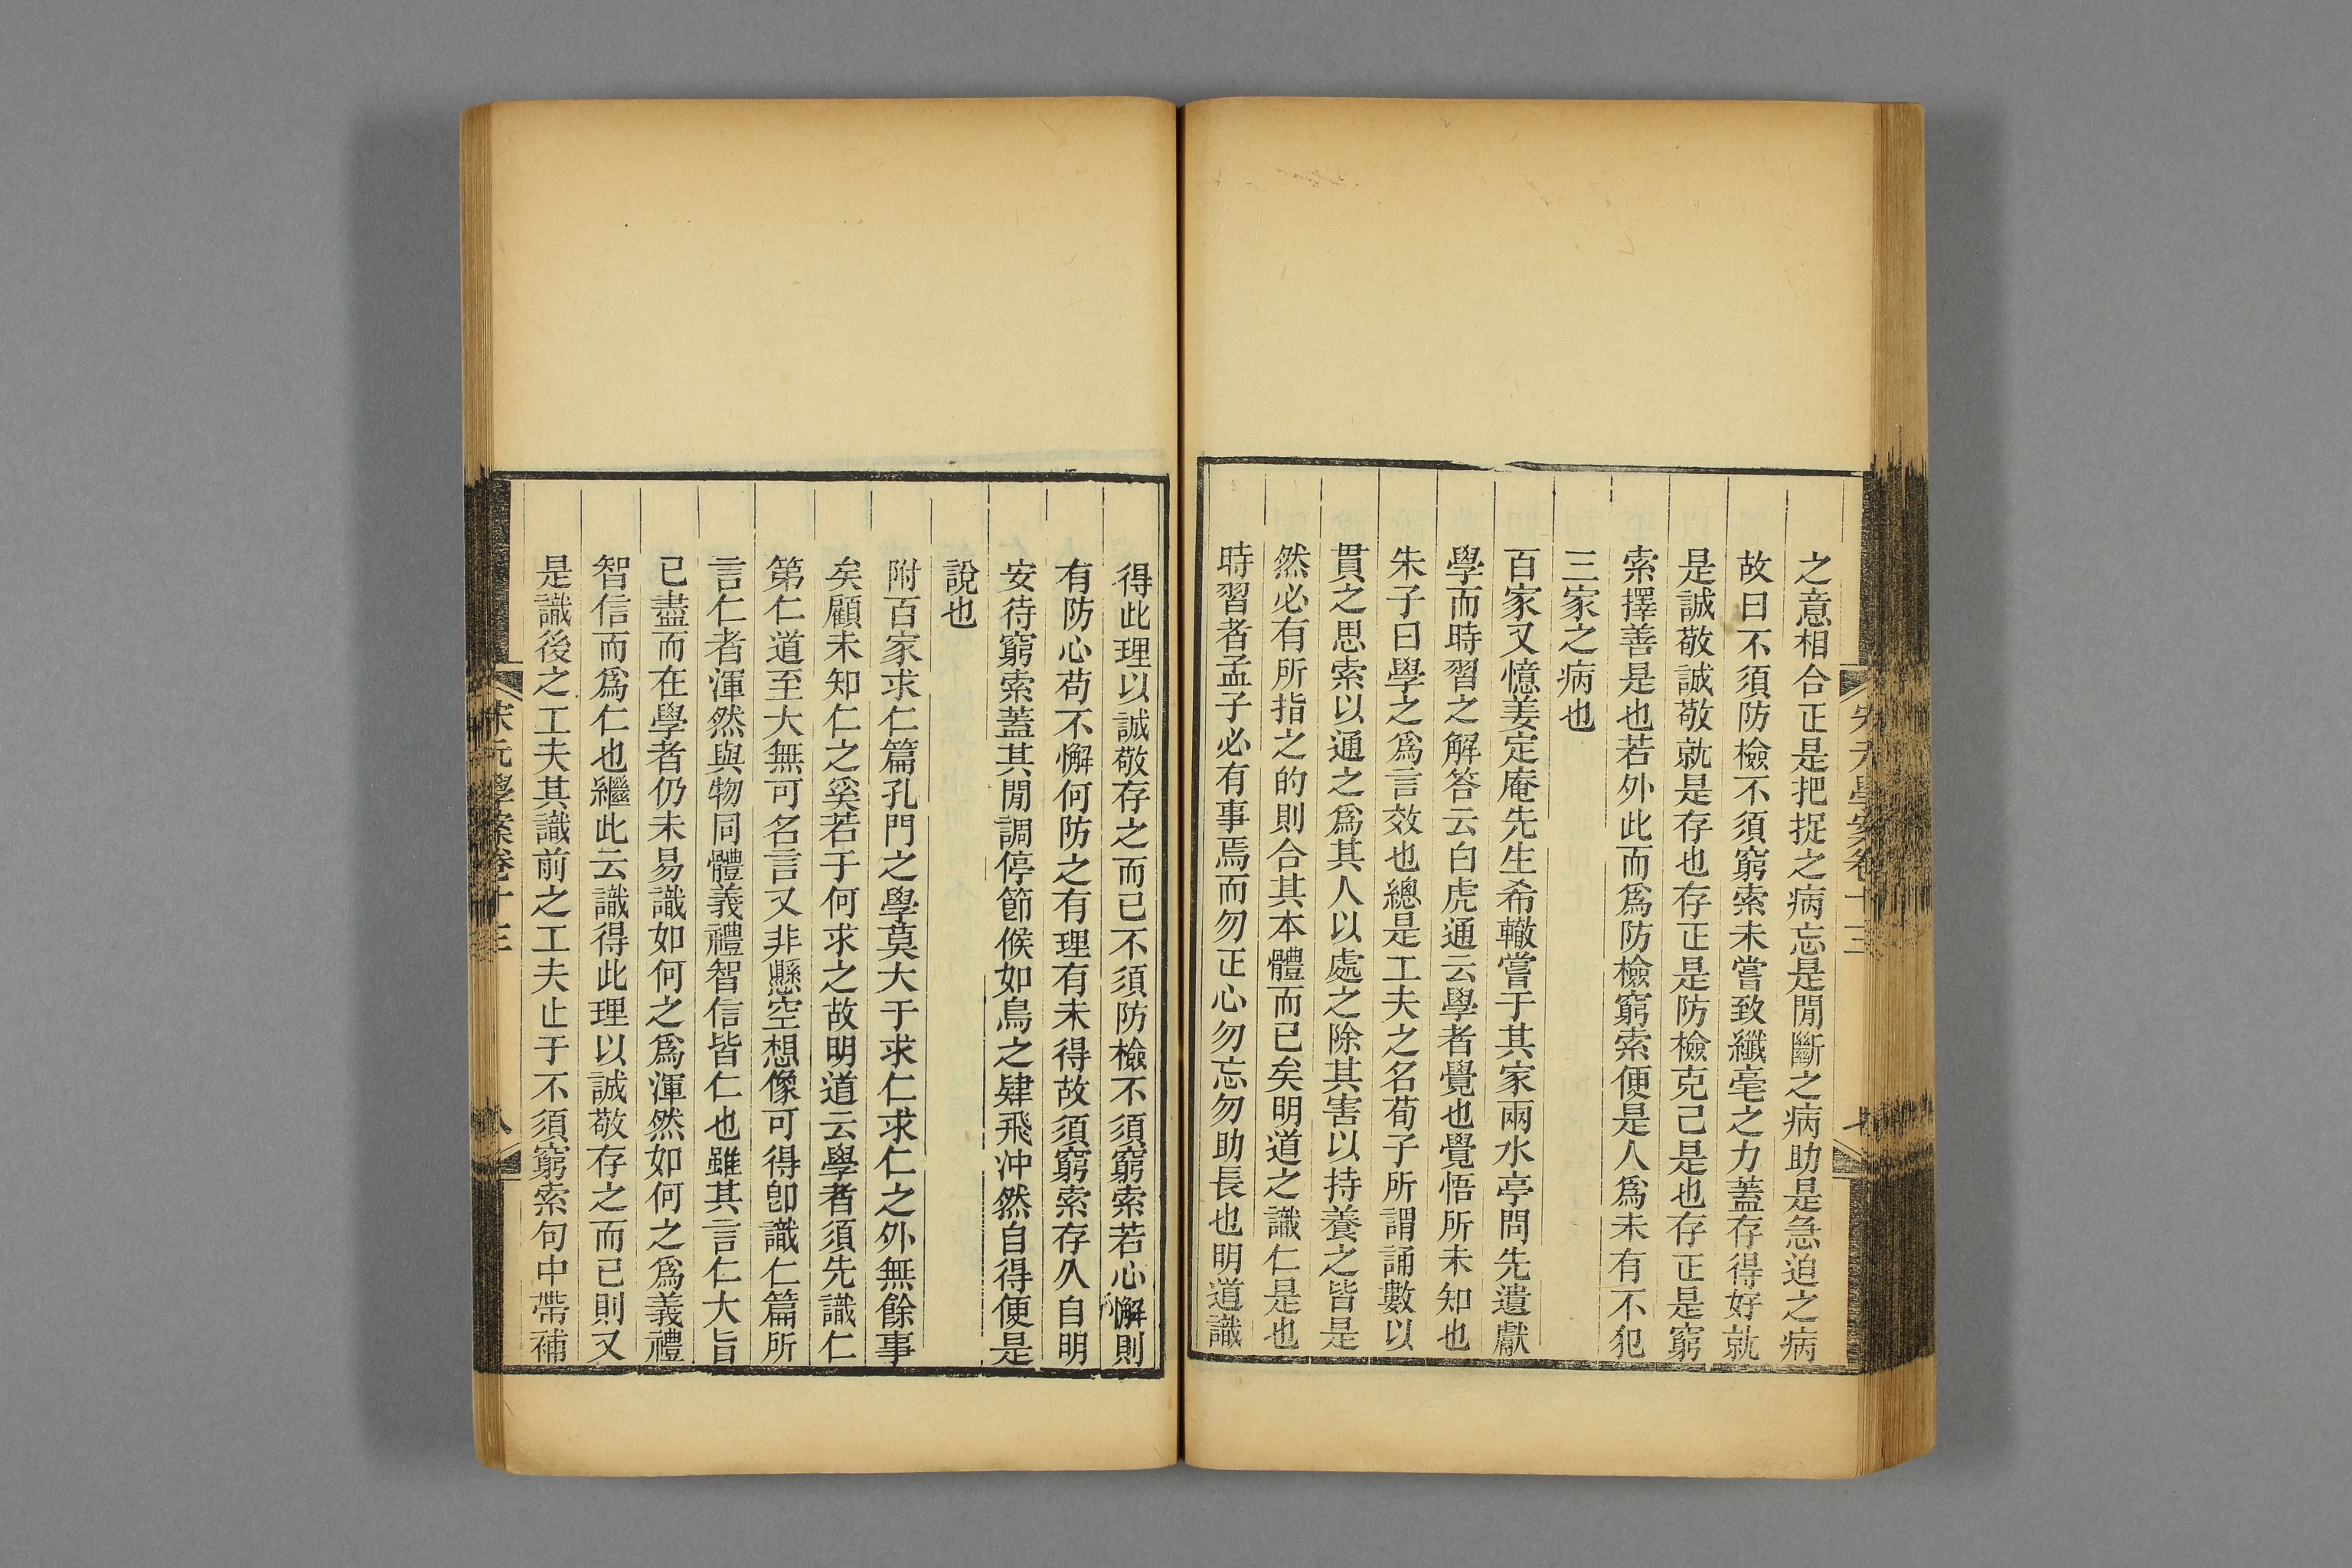 之意相合正是把捉之病忘是閒斷之病助是急迫之病
故曰不須防檢不須窮索未嘗致纖毫之力蓋存得好就
是誠敬誠敬就是存也存正是防檢克己是也存正是窮
索擇善是也若外此而爲防檢窮索便是人爲未有不犯
三家之病也
百家又憶姜定庵先生希轍嘗于其家兩水亭問先遺獻
學而時習之解答云白虎通云學者覺也覺悟所未知也
朱子曰學之爲言效也總是工夫之名荀子所謂誦數以
貫之思索以通之爲其人以處之除其害以持養之皆是
然必有所指之的則合其本體而已矣明道之識仁是也
時習者孟子必有事焉而勿正心勿忘勿助長也明道識
得此理以誠敬存之而已不須防檢不須窮索若心懈則
有防心苟不懈何防之有理有未得故須窮索存久自明
安待窮索蓋其閒調停節候如鳥之肆飛沖然自得便是
說也
附百家求仁篇孔門之學莫大于求仁求仁之外無餘事
矣顧未知仁之奚若于何求之故明道云學者須先識仁
第仁道至大無可名言又非懸空想像可得卽識仁篇所
言仁者渾然與物同體義禮智信皆仁也雖其言仁大旨
已盡而在學者仍未易識如何之爲渾然如何之爲義禮
智信而爲仁也繼此云識得此理以誠敬存之而已則又
是識後之工夫其識前之工夫止于不須窮索句中帶補
宋元學案卷十三
八